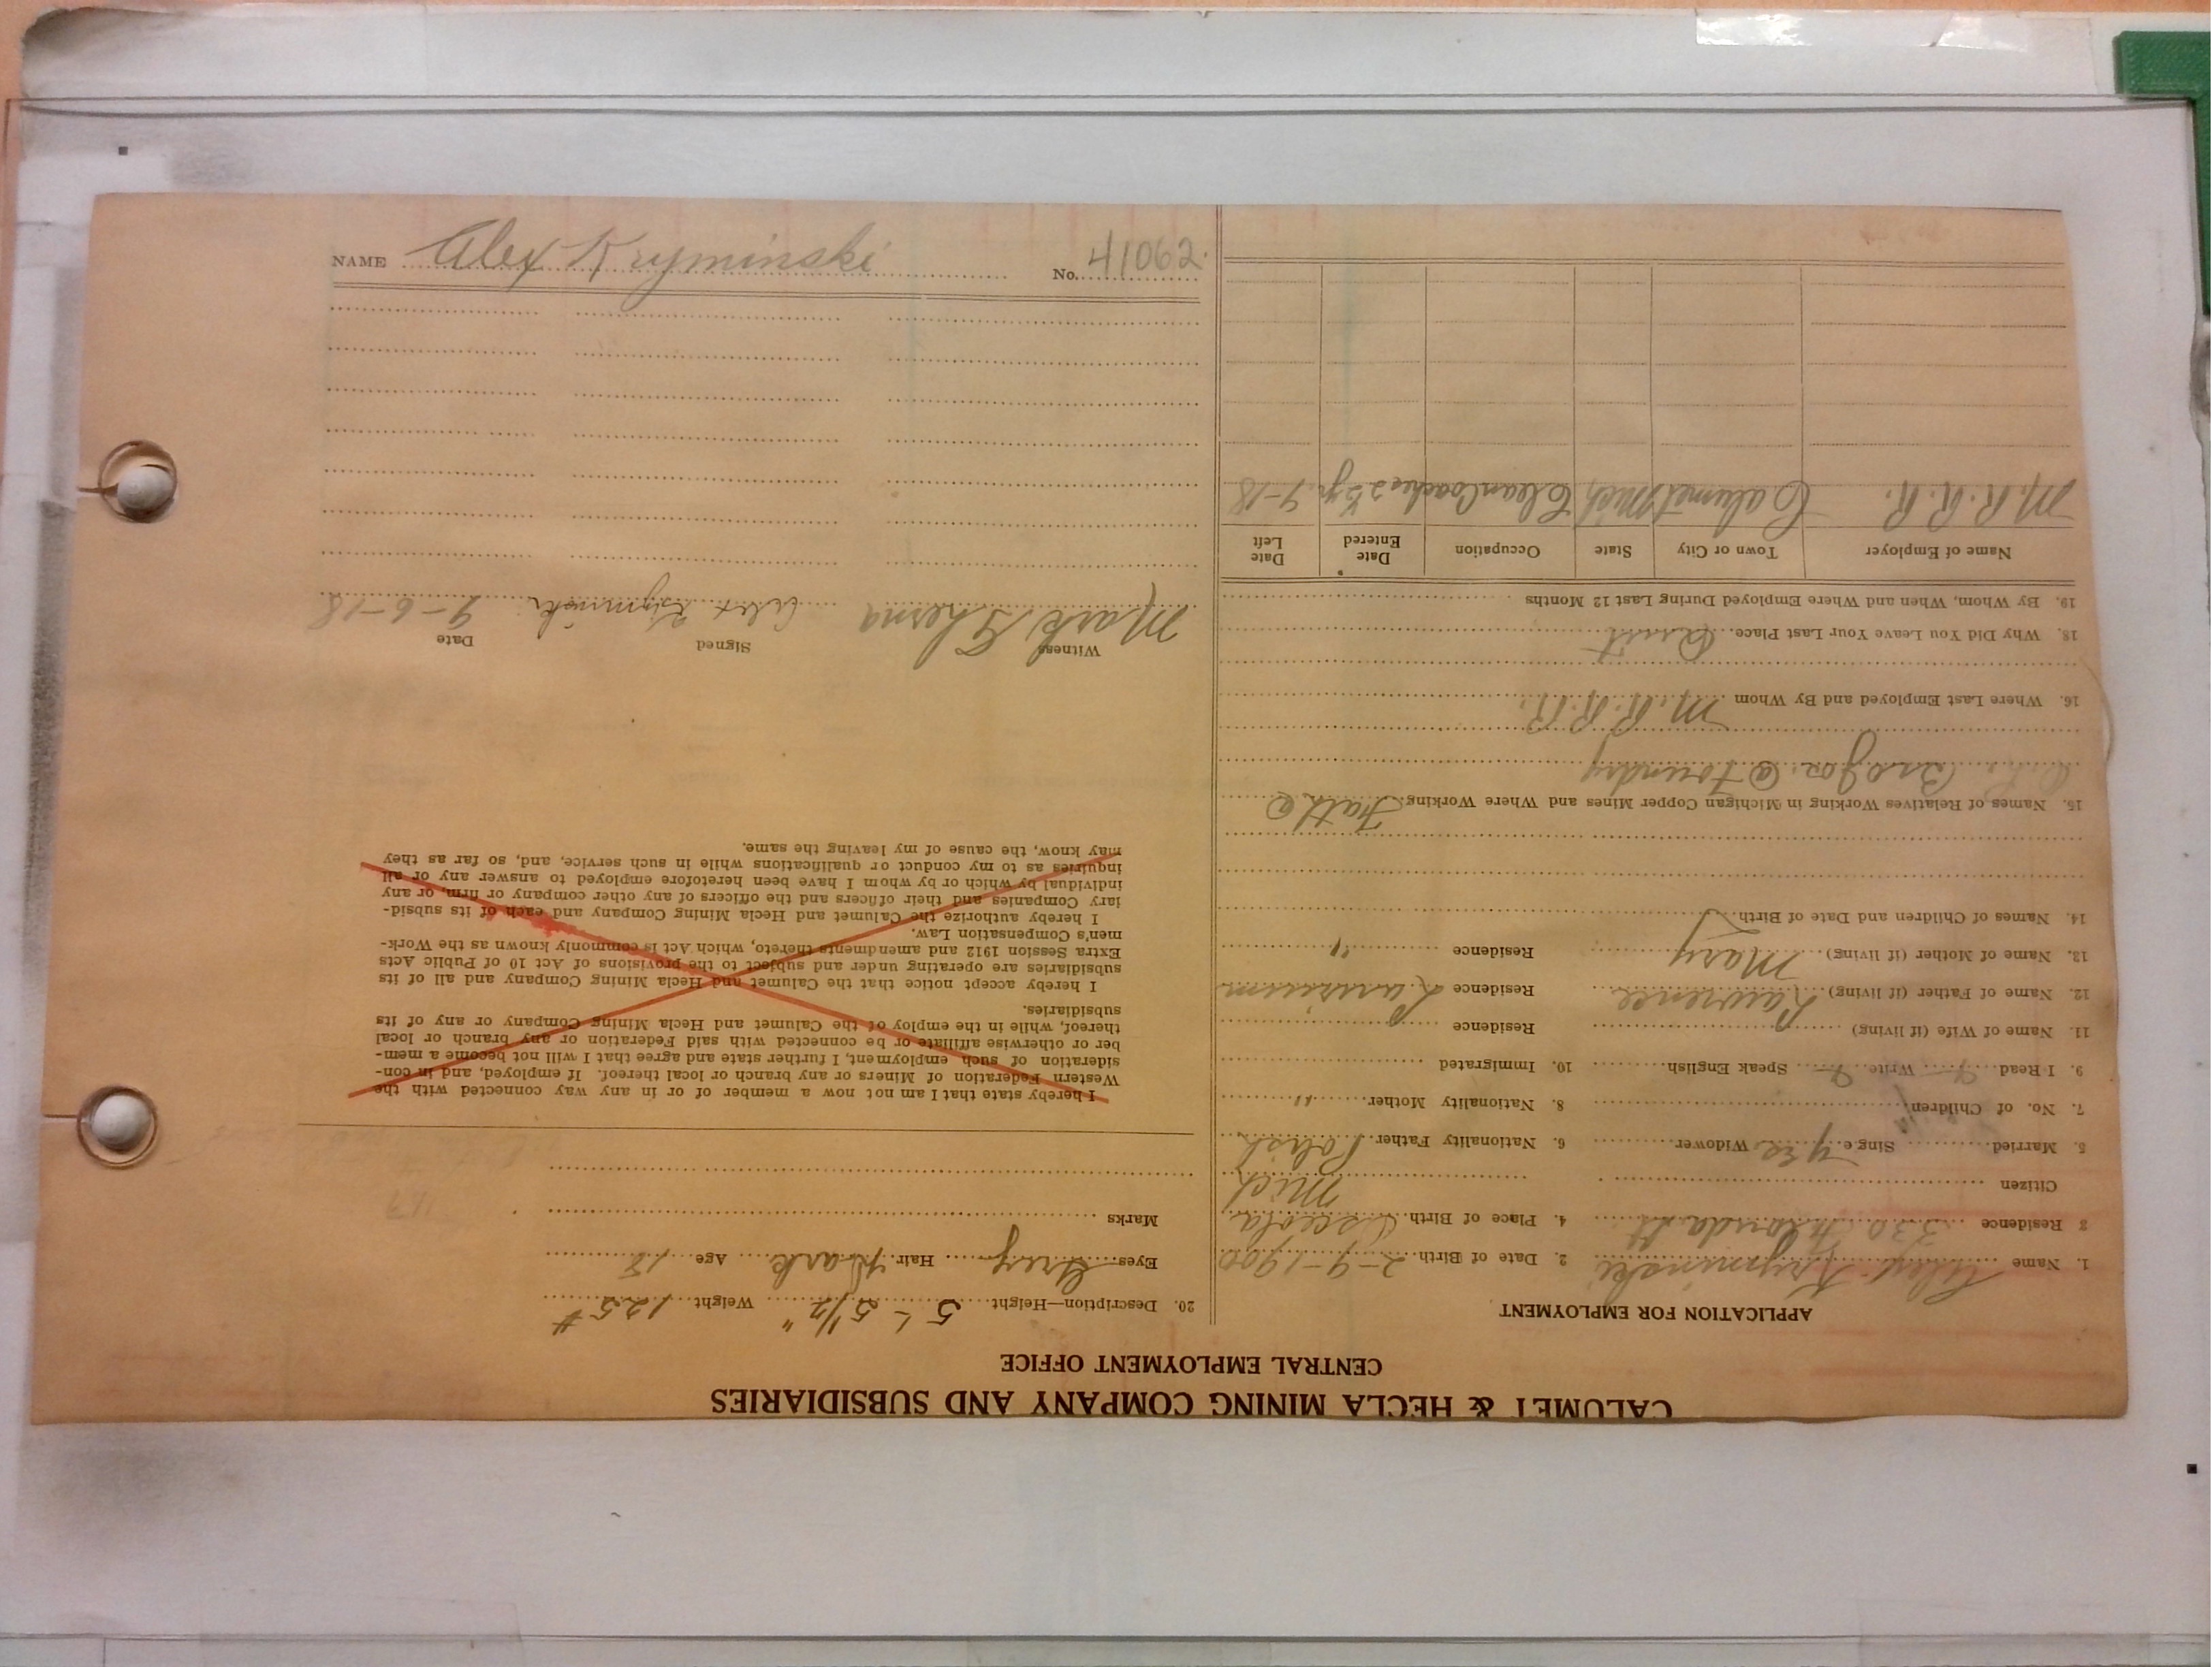 CALUMET & HECLA MINING COMPANY AND SUBSIDIARIES
CENTRAL EMPLOYMENT OFFICE
APPLICATION FOR EMPLOYMENT
1. Name Alex Kryminski 2. Date of Birth 2-9-1900
3 Residence 330 St 4. Place of Birth Osceola
Citizen Mich
5. Married Single yes Widower 6. Nationality Father Polish
7. No. of Children 8. Nationality Mother "
9. I Read Write Speak English 10. Immigrated
11. Name of Wife (if living) Residence
12. Name of Father (if living) Lawrence Residence Laurium
13. Name of Mother (if living) Mary Residence "
14. Names of Children and Date of Birth
15. Names of Relatives Working in Michigan Copper Mines and Where Working Fath @
Bro Joz. @ Foundry
16. Where Last Employed and By Whom M. R. R. R.
18. Why Did You Leave Your Last Place Quit
19. By Whom, When and Where Employed During Last 12 Months
Name of Employer Town or City State Occupation Date Entered Date Left
M. R. R. R. Calumet Mich Clean Coaches 9-18
20. Description—Height 5'-5 1/2" Weight 125#
Eyes Grey Hair Dark Age 18
Marks
I hereby state that I am not now a member of or in any way connected with the
Western Federation of Miners or any branch or local thereof. If employed, and in con-
sideration of such employment, I further state and agree that I will not become a mem-
ber or otherwise affiliate or be connected with said Federation or any branch or local
thereof, while in the employ of the Calumet and Hecla Mining Company or any of its
subsidiaries.
I hereby accept notice that the Calumet and Hecla Mining Company and all of its
subsidiaries are operating under and subject to the provisions of Act 10 of Public Acts
Extra Session 1912 and amendments thereto, which Act is commonly known as the Work-
men's Compensation Law.
I hereby authorize the Calumet and Hecla Mining Company and each of its subsid-
iary Companies and their officers and the officers of any other company or firm, or any
individual by which or by whom I have been heretofore employed to answer any or all
inquiries as to my conduct or qualifications while in such service, and, so far as they
may know, the cause of my leaving the same.
Witness Signed Date
Mark Gherna Alex Kryminski 9-6-18
NAME Alex Kryminski No. 41062